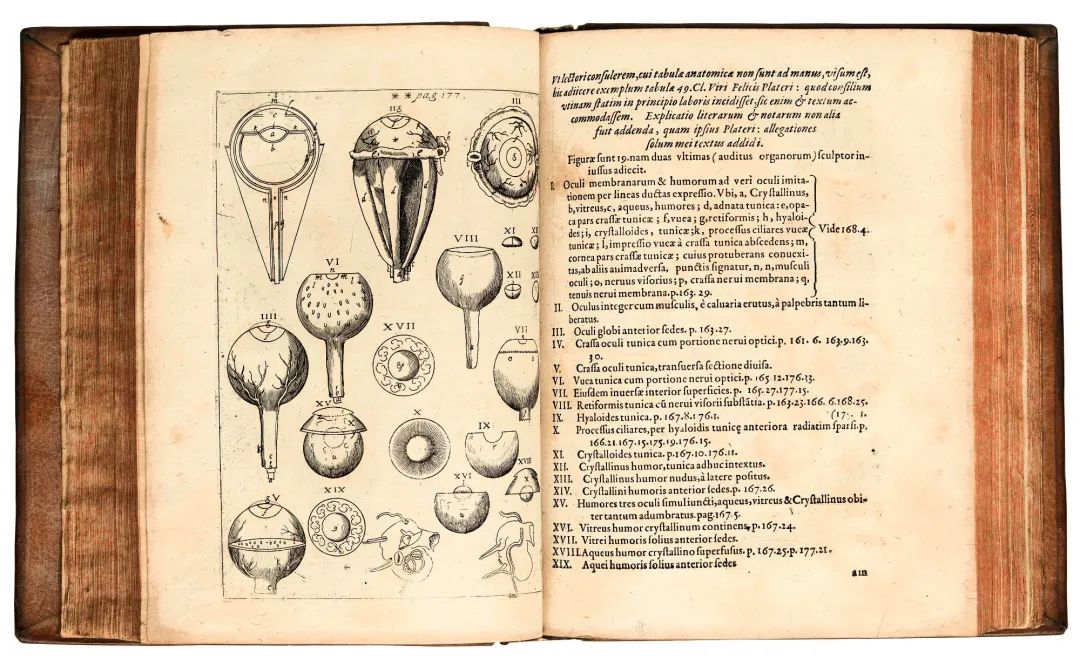 * * pag 177.
II
III
XI
VIII
VI
XII
XVII
IIII
VII
XV
X
IX
XVI
XVIII
V
XIX
Vt lectori consulerem, cui tabulæ anatomicæ non sunt ad manus, visum est,
hic adiicere exemplum tabulæ 49. Cl. Viri Felicis Plateri : quod consilium
vtinam statim in principio laboris incidisset, sic enim & textum ac-
commodassem. Explicatio literarum & notarum non alia
fuit addenda, quam ipsius Plateri : allegationes
solum mei textus addidi.
Figuræ sunt 19. nam duas vltimas ( auditus organorum ) sculptor in-
iussus adiecit.
I. Oculi membranarum & humorum ad veri oculi imita-
tionem per lineas ductas expressio. Vbi, a, Crystallinus,
b, vitreus, c, aqueus, humores ; d, adnata tunica : e, opa-
ca pars crassæ tunicæ ; f, vuea ; g, retiformis ; h, hyaloi-
des ; i, crystalloides, tunicæ ; k, processus ciliares vueæ
tunicæ ; l, impressio vueæ à crassa tunica abscedens ; m,
cornea pars crassæ tunicæ ; cuius protuberans conuexi-
tas, ab aliis animadversa, punctis signatur, n, n, musculi
oculi ; o, neruus visorius ; p, crassa nerui membrana ; q,
tenuis nerui membrana. p. 163. 29.
Vide 168.4.
II. Oculus integer cum musculis, è caluaria erutus, à palpebris tantum li-
beratus.
III. Oculi globi anterior sedes. p. 163.27.
IV. Crassa oculi tunica cum portione nerui optici. p. 161. 6. 163.9.163.
30.
V. Crassa oculi tunica, transuersa sectione diuisa.
VI. Vuea tunica cum portione nerui optici. p. 165 12.176.33.
VII. Eiusdem inuersæ interior superficies. p. 165.27.177.15.
VIII. Retiformis tunica cū nerui visorii substātia. p. 163.23.166. 6.168.25.
IX. Hyaloides tunica. p. 167.8.176.1.
X. Processus ciliares, per hyaloidis tunicę anteriora radiatim sparsi. p.
166.21.167.15.175.19.176.15.
XI. Crystalloides tunica. p. 167.10.176.11.
XII. Crystallinus humor, tunica adhuc intextus.
XIII. Crystallinus humor nudus, à latere positus.
XIV. Crystallini humoris anterior sedes. p. 167.26.
XV. Humores tres oculi simul iuncti, aqueus, vitreus & Crystallinus obi-
ter tantum adumbratus. pag. 167.5.
XVI. Vitreus humor crystallinum continens, p. 167.24.
XVII. Vitrei humoris solius anterior sedes.
XVIII. Aqueus humor crystallino superfusus. p. 167.25. p. 177.21.
XIX. Aquei humoris solius anterior sedes